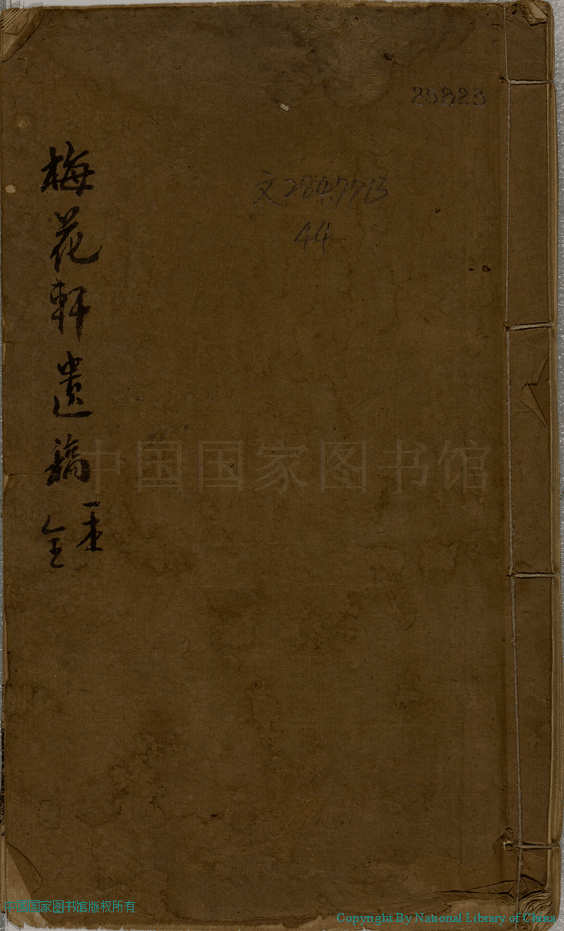 25823
文284.7715
44
梅花軒遺稿
一本
全
中国国家图书馆
中国国家图书馆版权所有
Copyright By National Library of China